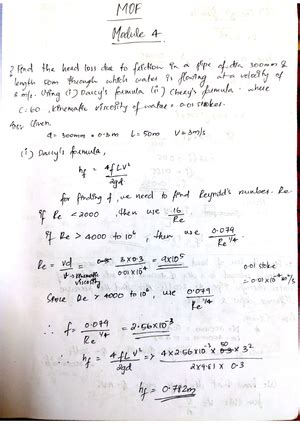 MOF
Module 4
? Find the head loss due to friction in a pipe of dia 300mm &
length 50m through which water is flowing at a velocity of
3 m/s. Using (i) Darcy's formula (ii) Chezy's formula. where
C = 60, kinematic viscosity of water = 0.01 stokes.
Ans: Given
d = 300mm = 0.3m L = 50m V = 3m/s
(i) Darcy's formula,
hf = 4fLV²/2gd
for finding f, we need to find Reynold's number. Re
if Re < 2000, then use 16/Re
if Re > 4000 to 10⁶, then, use 0.079/Re^1/4
Re = Vd/ν = 3×0.3/0.01×10⁻⁴ = 9×10⁵
ν → kinematic viscosity
0.01 stoke = 0.01×10⁻⁴ m²/s
Since Re > 4000 to 10⁶, use 0.079/Re^1/4
∴ f = 0.079/Re^1/4 = 2.56×10⁻³
∴ hf = 4fLV²/2gd => 4×2.56×10⁻³×50×3²/2×9.81×0.3
hf = 0.782m